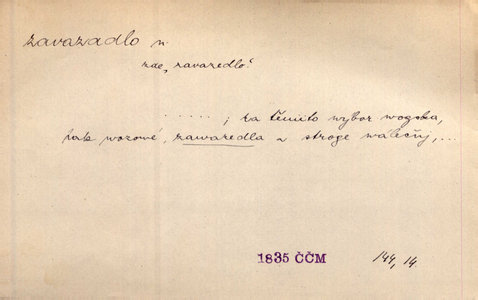 zavazadlo n.
zde „zavazedlo"
. . . . . . ; za těmito wybor wogska,
tak wozowé, zawazedla a stroge wálečnj, ...
1835 ČČM 144, 14